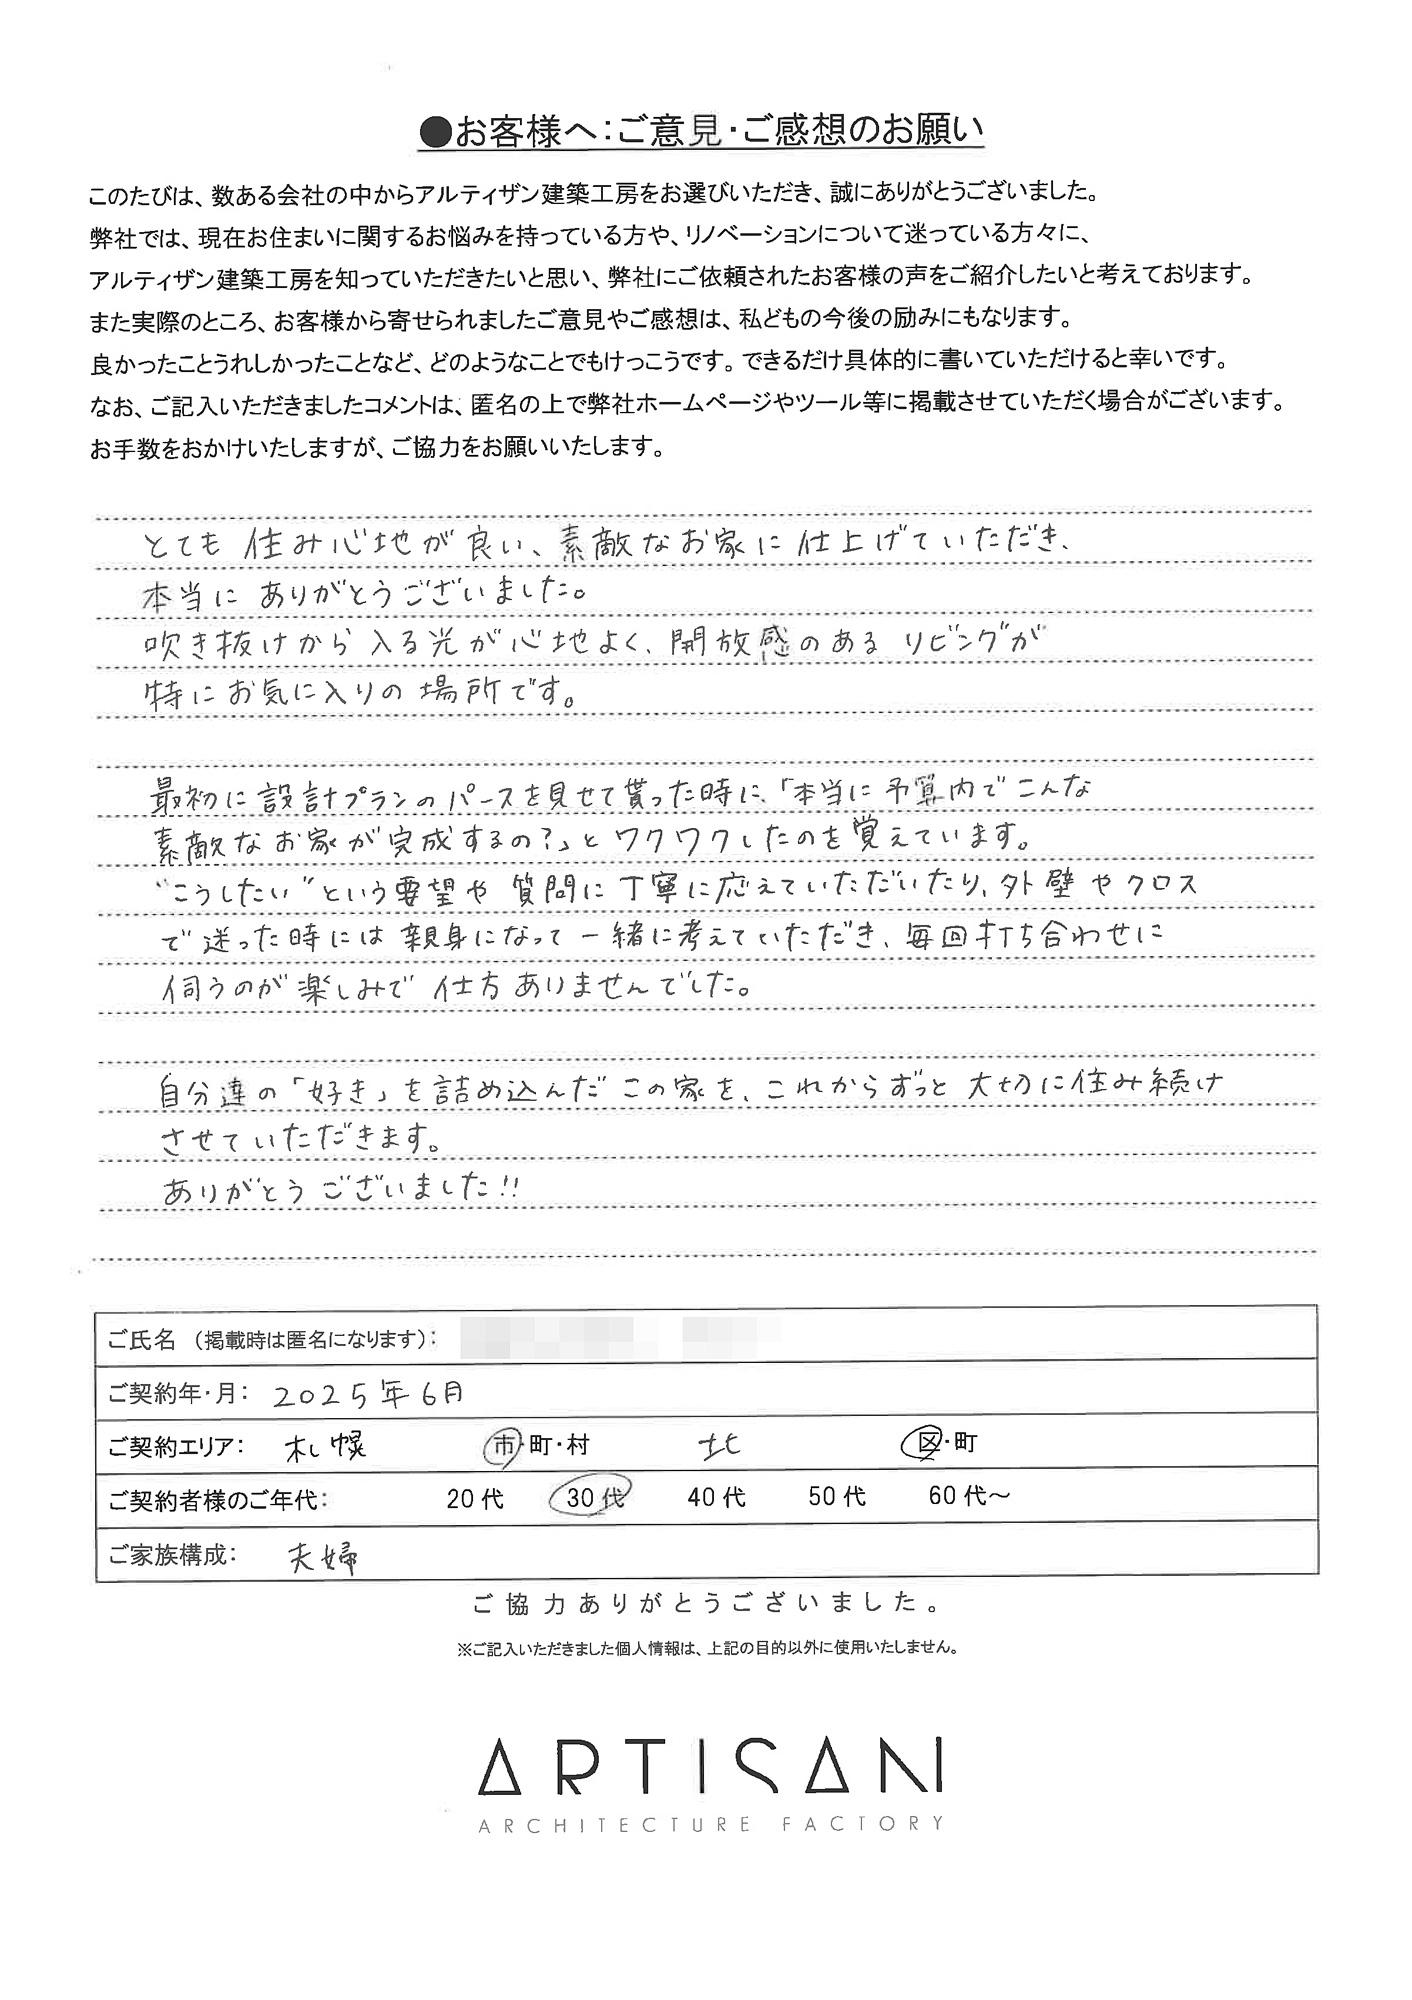 ●お客様へ：ご意見・ご感想のお願い
このたびは、数ある会社の中からアルティザン建築工房をお選びいただき、誠にありがとうございました。
弊社では、現在お住まいに関するお悩みを持っている方や、リノベーションについて迷っている方々に、
アルティザン建築工房を知っていただきたいと思い、弊社にご依頼されたお客様の声をご紹介したいと考えております。
また実際のところ、お客様から寄せられましたご意見やご感想は、私どもの今後の励みにもなります。
良かったことうれしかったことなど、どのようなことでもけっこうです。できるだけ具体的に書いていただけると幸いです。
なお、ご記入いただきましたコメントは、匿名の上で弊社ホームページやツール等に掲載させていただく場合がございます。
お手数をおかけいたしますが、ご協力をお願いいたします。
とても住み心地が良い、素敵なお家に仕上げていただき、
本当にありがとうございました。
吹き抜けから入る光が心地よく、開放感のあるリビングが
特にお気に入りの場所です。
最初に設計プランのパースを見せて貰った時に、「本当に予算内でこんな
素敵なお家が完成するの？」とワクワクしたのを覚えています。
"こうしたい"という要望や質問に丁寧に応えていただいたり、外壁やクロス
で迷った時には親身になって一緒に考えていただき、毎回打ち合わせに
伺うのが楽しみで仕方ありませんでした。
自分達の「好き」を詰め込んだこの家を、これからずっと大切に住み続け
させていただきます。
ありがとうございました!!
ご氏名（掲載時は匿名になります）：
ご契約年・月： 2025年6月
ご契約エリア： 札幌 市・町・村 北 区・町
ご契約者様のご年代： 20代 30代 40代 50代 60代～
ご家族構成： 夫婦
ご協力ありがとうございました。
※ご記入いただきました個人情報は、上記の目的以外に使用いたしません。
ARTISAN
ARCHITECTURE FACTORY